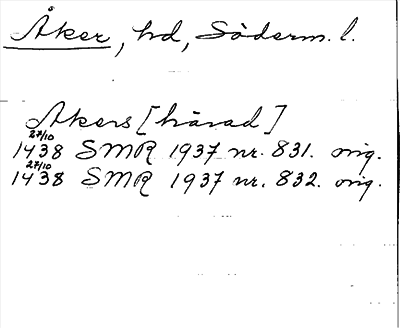 Åker, hd, Söderm. l.
Akers [härad]
27/10
1438 SMR 1937 nr. 831. orig.
27/10
1438 SMR 1937 nr. 832. orig.